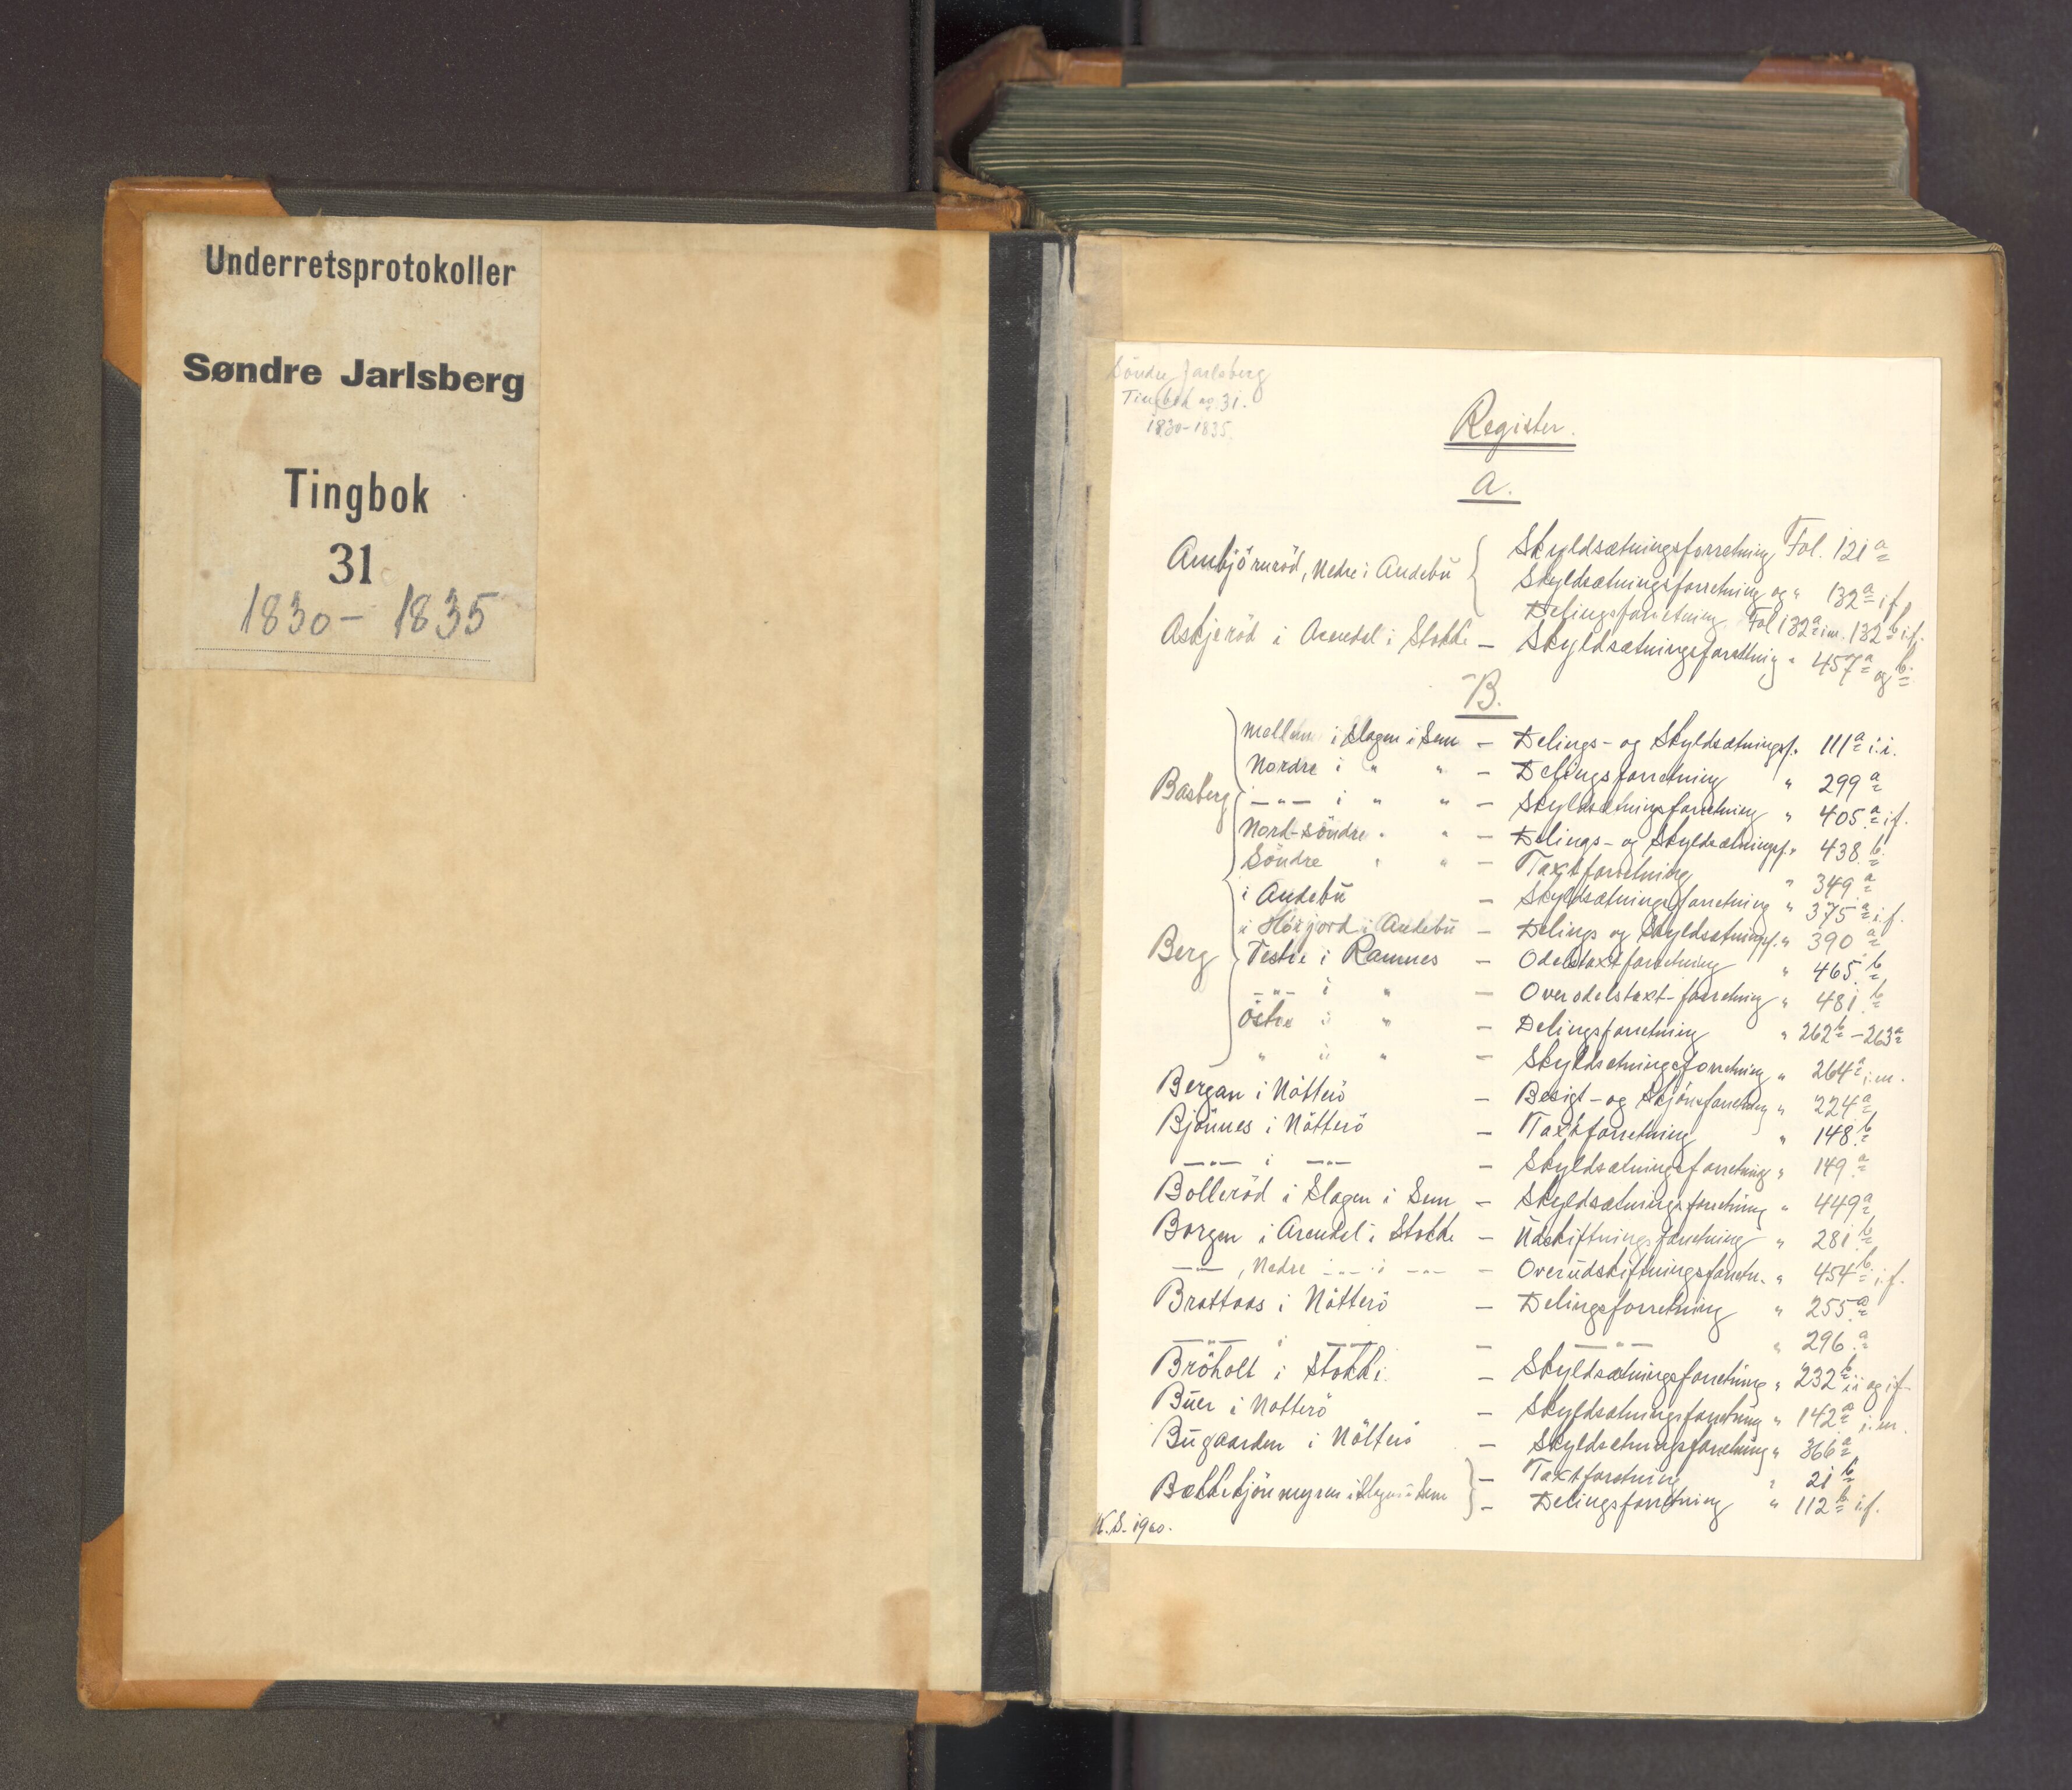 Underretsprotokoller
Søndre Jarlsberg
Tingbok
31
1830 - 1835
Söndre Jarlsberg
Tingbok no 31.
1830-1835.
Register.
A.
Ambjörnröd, Nedre i Andebu { Skyldsætningsforretning Fol. 121 a
Skyldsætningsforretning og " 132 a i.f.
Delingsforretning Fol 132 a i.m. 132 b i.f.
Askjeröd i Arendal i Stokke - Skyldsætningsforretning " 457 a og b
B.
Basberg { mellem i Slagen i Sem - Delings- og Skyldsætningsf. " 111 a i.i.
Nordre i " " - Delingsforretning " 299 a
-"- i " " - Skyldsætningsforretning " 405 a i.f.
Nord-söndre " " - Delings- og Skyldsætningsf. " 438 b
Söndre " " - Taxtforretning " 349 a
Berg { i Andebu - Skyldsætningsforretning " 375 a i.f.
i Høijord i Andebu - Delings og Skyldsætningsf. " 390 a
Vestre i Ramnes - Odelstaxtforretning " 465 b
-"- i " - Overodelstaxt-forretning " 481 b
Östre i " - Delingsforretning " 262 b - 263 a
" i " - Skyldsætningsforretning " 264 a i.m.
Bergan i Nötterö - Besigt- og Skjönsforretning " 224 a
Bjönnes i Nötterö - Taxtforretning " 148 b
-"- i -"- - Skyldsætningsforretning " 149 a
Bolleröd i Slagen i Sem - Skyldsætningsforretning " 449 a
Borgen i Arendal i Stokke - Udskiftningsforretning " 281 b
-"-, Nedre i -"- i -"- - Overudskiftningsforretn. " 454 b i.f.
Brattaas i Nötterö - Delingsforretning " 255 a
-"- i -"- - -"- " 296 a
Bröholt i Stokke - Skyldsætningsforretning " 232 b i.i. og i.f.
Buer i Nötterö - Skyldsætningsforretning " 142 a i.m.
Bugaarden i Nötterö - Skyldsætningsforretning " 366 a
Bækkekjönmyren i Slagen i Sem } - Taxtforretning " 21 b
- Delingsforretning " 112 b i.f.
K.S. 1940.